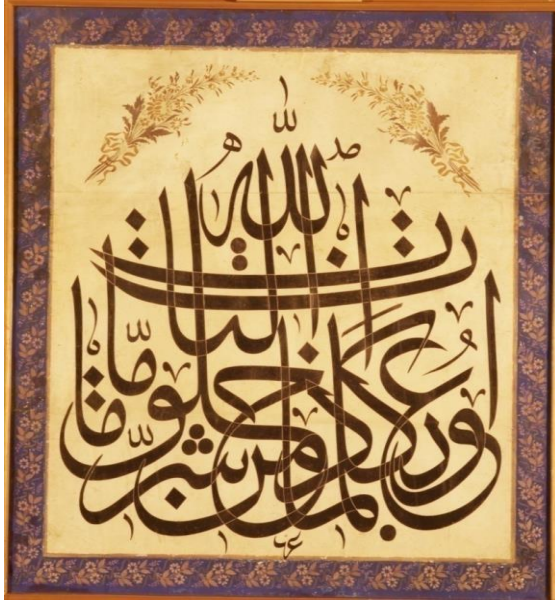 اعوذ بكلمات الله التامات من شر ما خلق